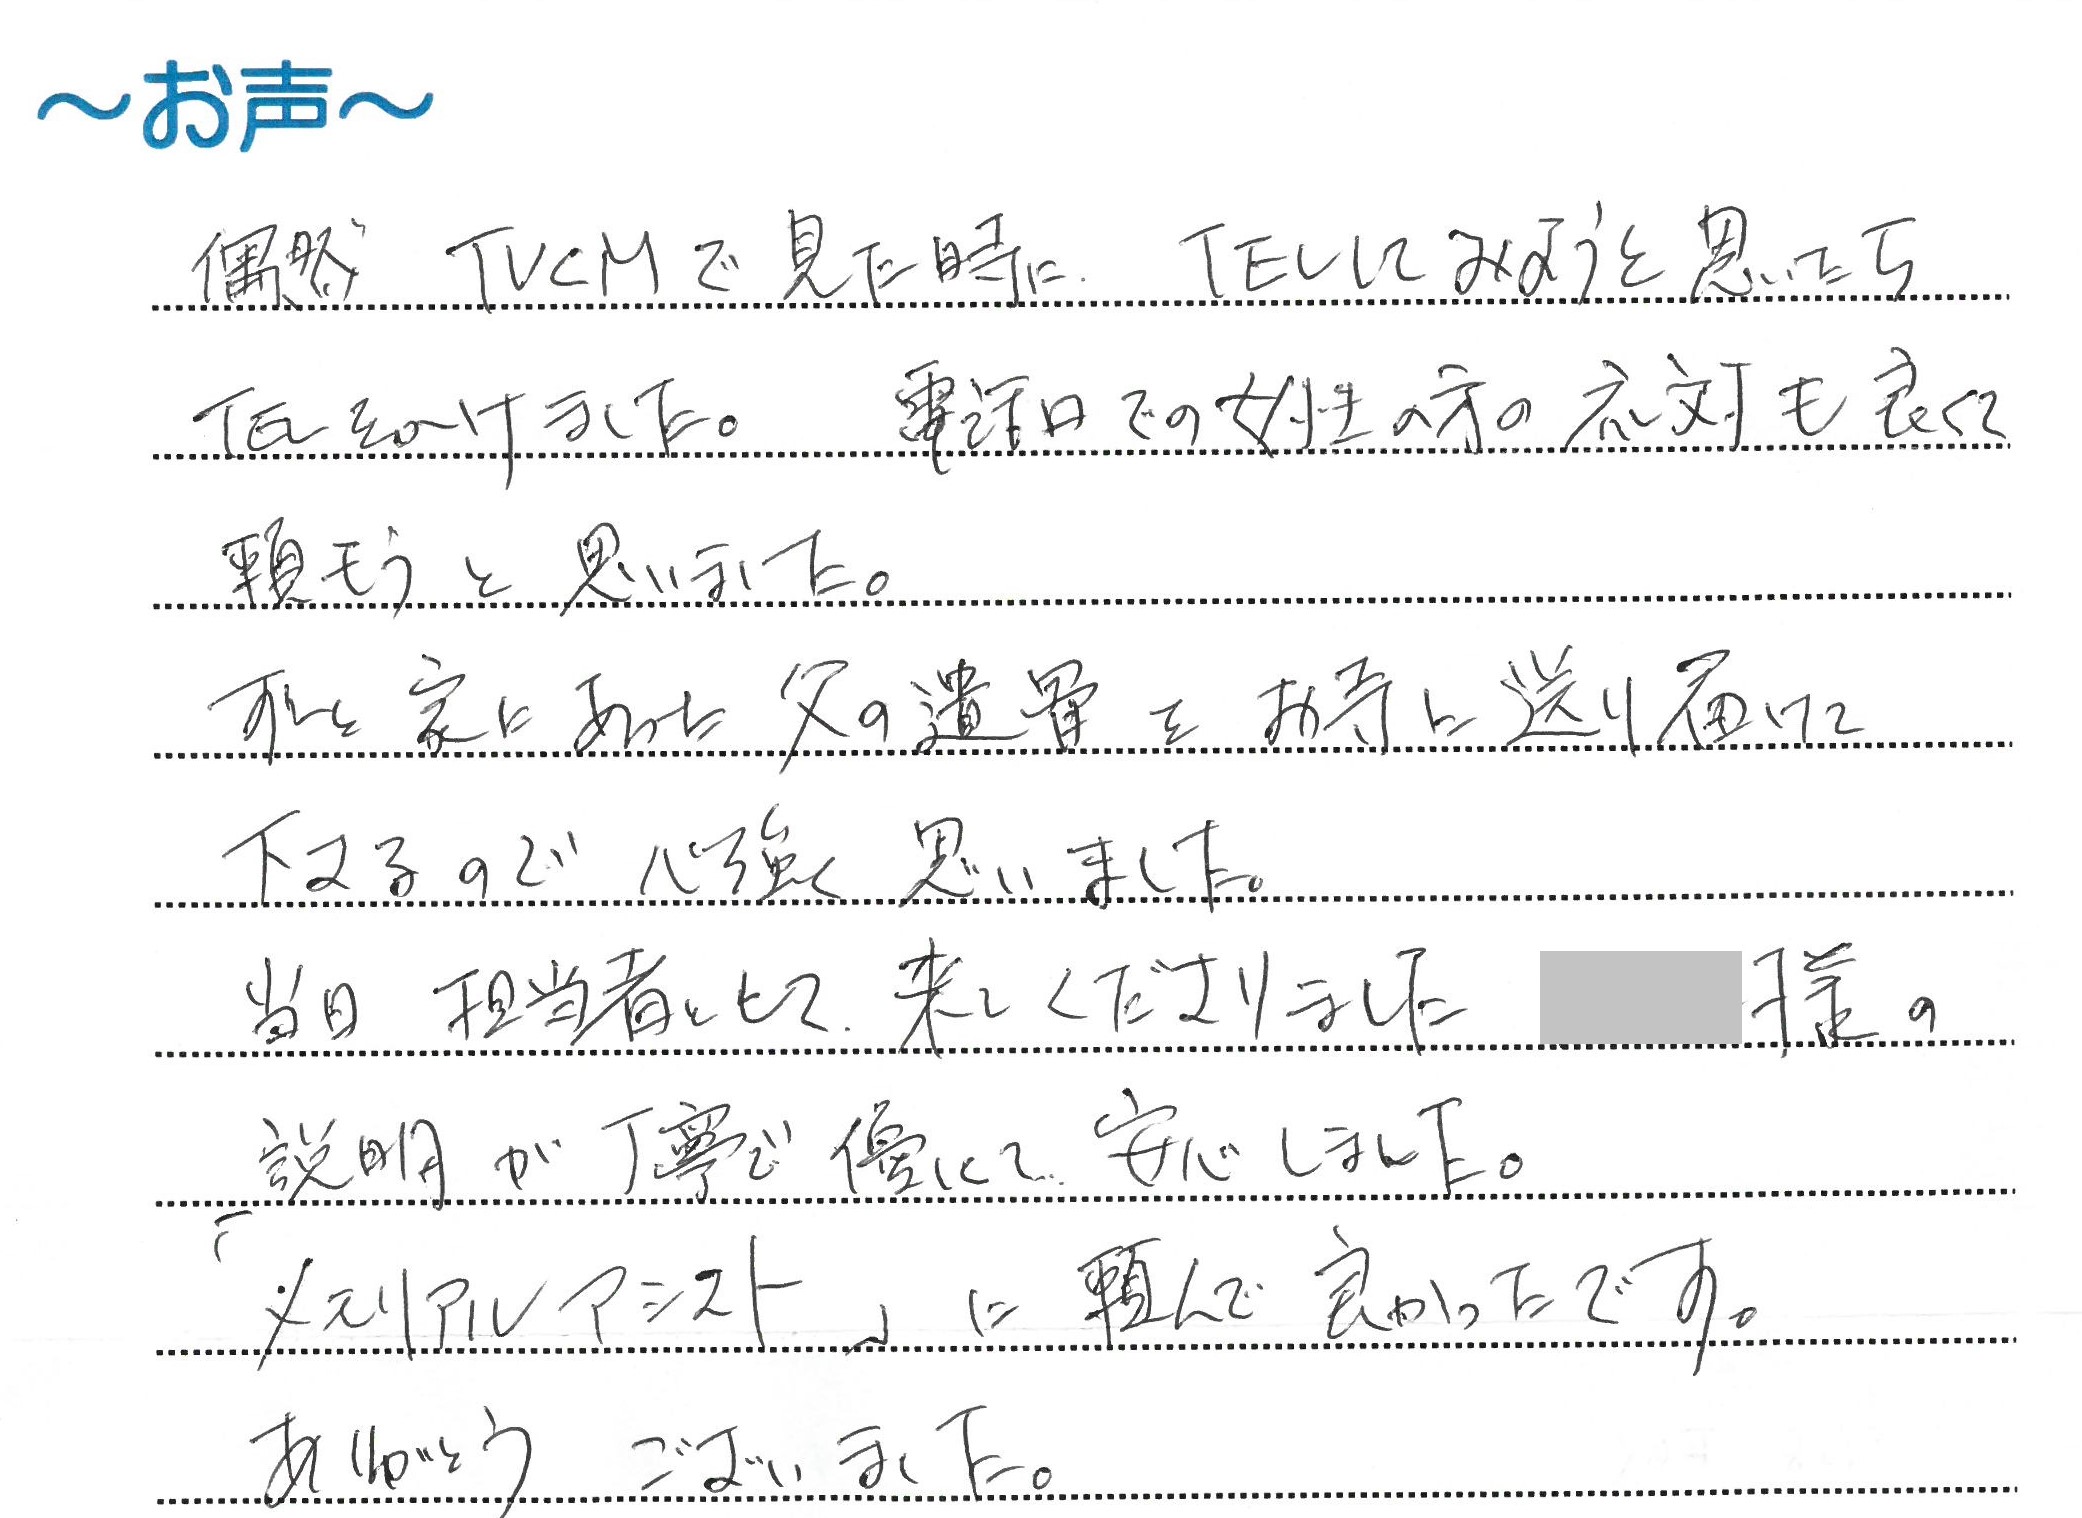 ～お声～
偶然 TVCMで見た時に TELしてみようと思いたち
TELをかけました。 電話口での女性の方の応対も良くて
頼もうと思いました。
ずっと家にあった父の遺骨をお寺に送り届けて
下さるので心強く思いました。
当日 担当者として 来てくださりました 様の
説明が丁寧で優しくて 安心しました。
「メモリアルアシスト」に頼んで良かったです。
ありがとうございました。